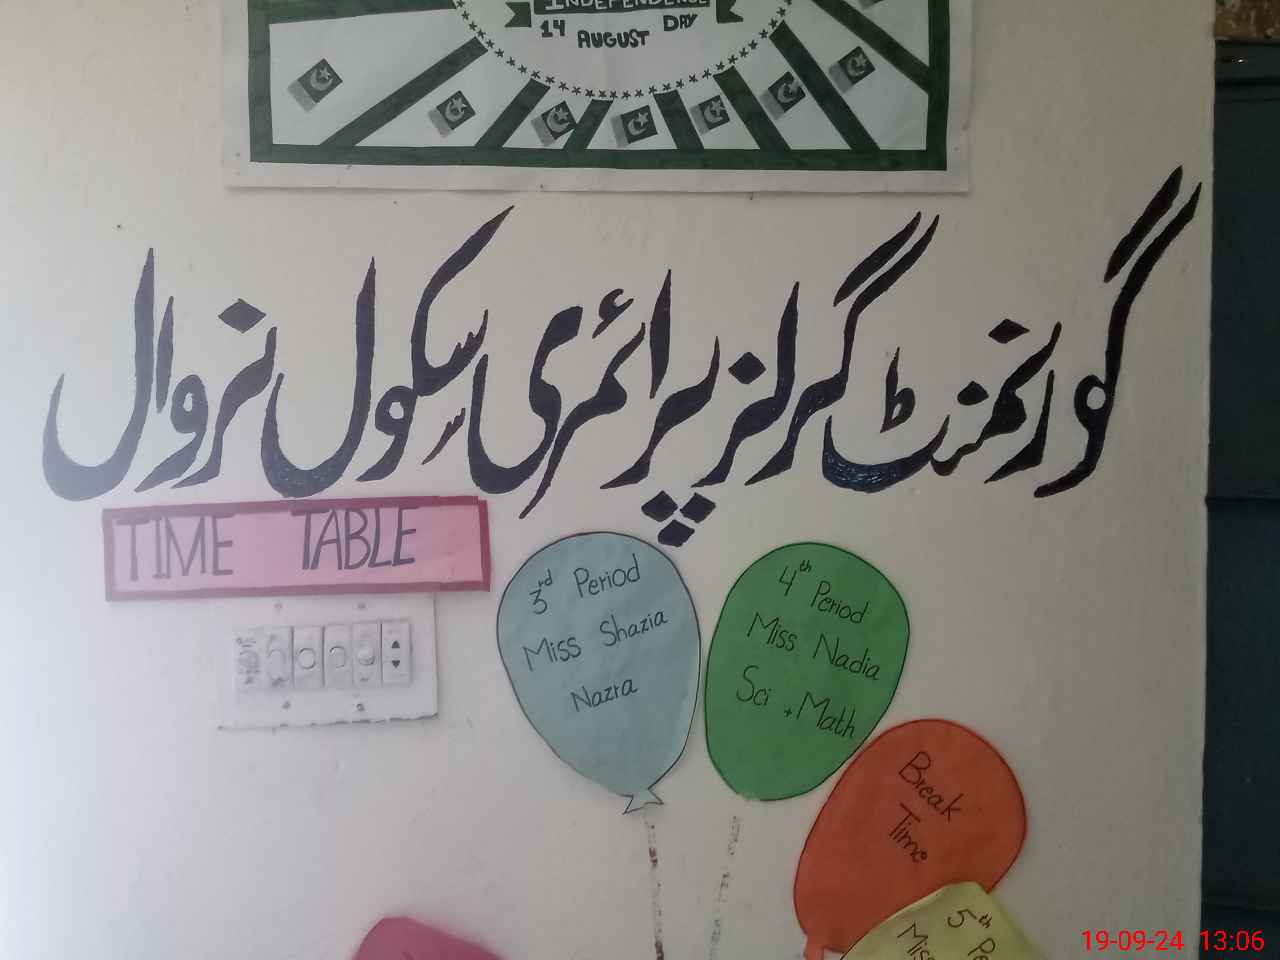 INDEPENDENCE
14 AUGUST DAY
گورنمنٹ گرلز پرائمری سکول نروال
TIME TABLE
3rd Period
Miss Shazia
Nazra
4th Period
Miss Nadia
Sci + Math
Break
Time
5th Pe
Miss
19-09-24 13:06